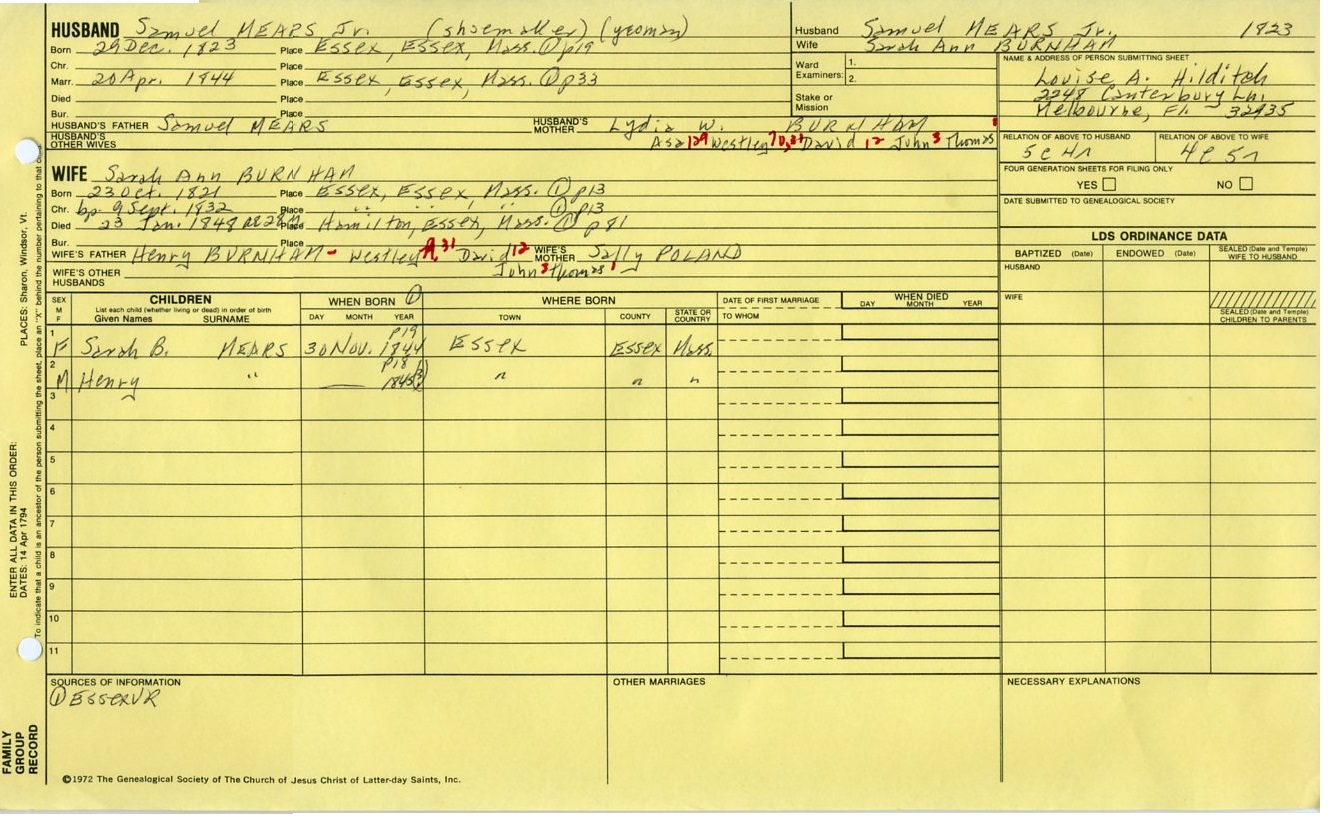 HUSBAND Samuel MEARS Jr. (shoemaker) (yeoman)
Born 29 Dec. 1823 Place Essex, Essex, Mass. ① p19
Chr. Place
Marr. 20 Apr. 1844 Place Essex, Essex, Mass. ① p33
Died Place
Bur. Place
HUSBAND'S FATHER Samuel MEARS HUSBAND'S MOTHER Lydia W. BURNHAM
HUSBAND'S OTHER WIVES Asa 129 Westley David 12 John 3 Thomas 1
Husband Samuel MEARS Jr. 1823
Wife Sarah Ann BURNHAM
Ward Examiners: 1.
2.
Stake or Mission
NAME & ADDRESS OF PERSON SUBMITTING SHEET
Louise A. Hilditch
2248 Canterbury Ln.
Melbourne, Fl. 32935
RELATION OF ABOVE TO HUSBAND RELATION OF ABOVE TO WIFE
5c4r 4c5r
FOUR GENERATION SHEETS FOR FILING ONLY
YES NO
DATE SUBMITTED TO GENEALOGICAL SOCIETY
WIFE Sarah Ann BURNHAM
Born 23 Oct. 1821 Place Essex, Essex, Mass. ① p13
Chr. bp. 9 Sept. 1832 Place " " " ① p13
Died 23 Jan. 1848 Place Hamilton, Essex, Mass. ① p81
Bur. Place
WIFE'S FATHER Henry BURNHAM - Westley 31 David 12 WIFE'S MOTHER Sally POLAND
John 3 Thomas 1
WIFE'S OTHER HUSBANDS
LDS ORDINANCE DATA
BAPTIZED (Date) ENDOWED (Date) SEALED (Date and Temple) WIFE TO HUSBAND
HUSBAND
WIFE
SEALED (Date and Temple) CHILDREN TO PARENTS
SEX M F CHILDREN WHEN BORN ① WHERE BORN DATE OF FIRST MARRIAGE WHEN DIED
List each child (whether living or dead) in order of birth
Given Names SURNAME DAY MONTH YEAR TOWN COUNTY STATE OR COUNTRY TO WHOM DAY MONTH YEAR
p19
1 F Sarah B. MEARS 30 Nov. 1844 Essex Essex Mass.
p18
2 M Henry " — 1845 " " "
3
4
5
6
7
8
9
10
11
SOURCES OF INFORMATION
① Essex VR
OTHER MARRIAGES
NECESSARY EXPLANATIONS
©1972 The Genealogical Society of The Church of Jesus Christ of Latter-day Saints, Inc.
FAMILY GROUP RECORD
ENTER ALL DATA IN THIS ORDER:
DATES: 14 Apr 1794
PLACES: Sharon, Windsor, Vt.
To indicate that a child is an ancestor of the person submitting the sheet, place an "X" behind the number pertaining to that